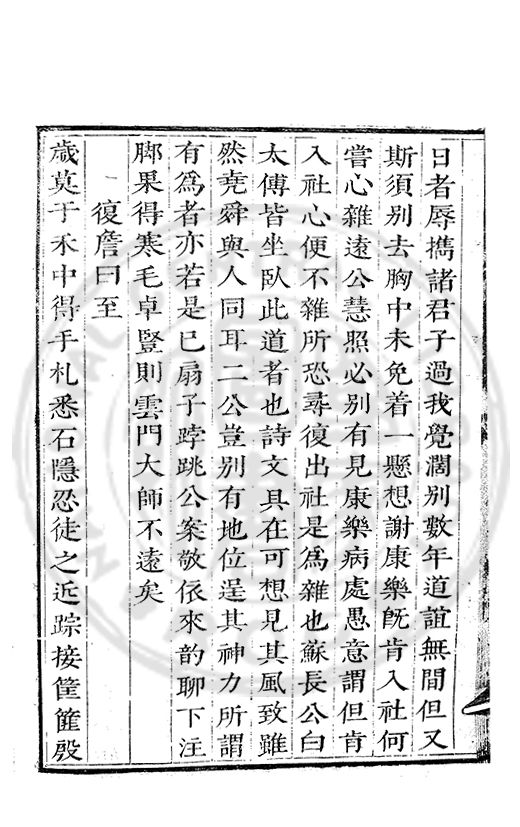 日者辱攜諸君子過我覺濶別數年道誼無間但又
斯須別去胸中未免着一懸想謝康樂旣肯入社何
嘗心雜遠公慧照必別有見康樂病處愚意謂但肯
入社心便不雜所恐尋復出社是爲雜也蘇長公白
太傅皆坐臥此道者也詩文具在可想見其風致雖
然堯舜與人同耳二公豈別有地位逞其神力所謂
有爲者亦若是巳扇子踍跳公案敬依來韵聊下注
脚果得寒毛卓豎則雲門大師不遠矣
復詹曰至
歲莫于禾中得手札悉石隱忍徒之近踪接筐篚殷